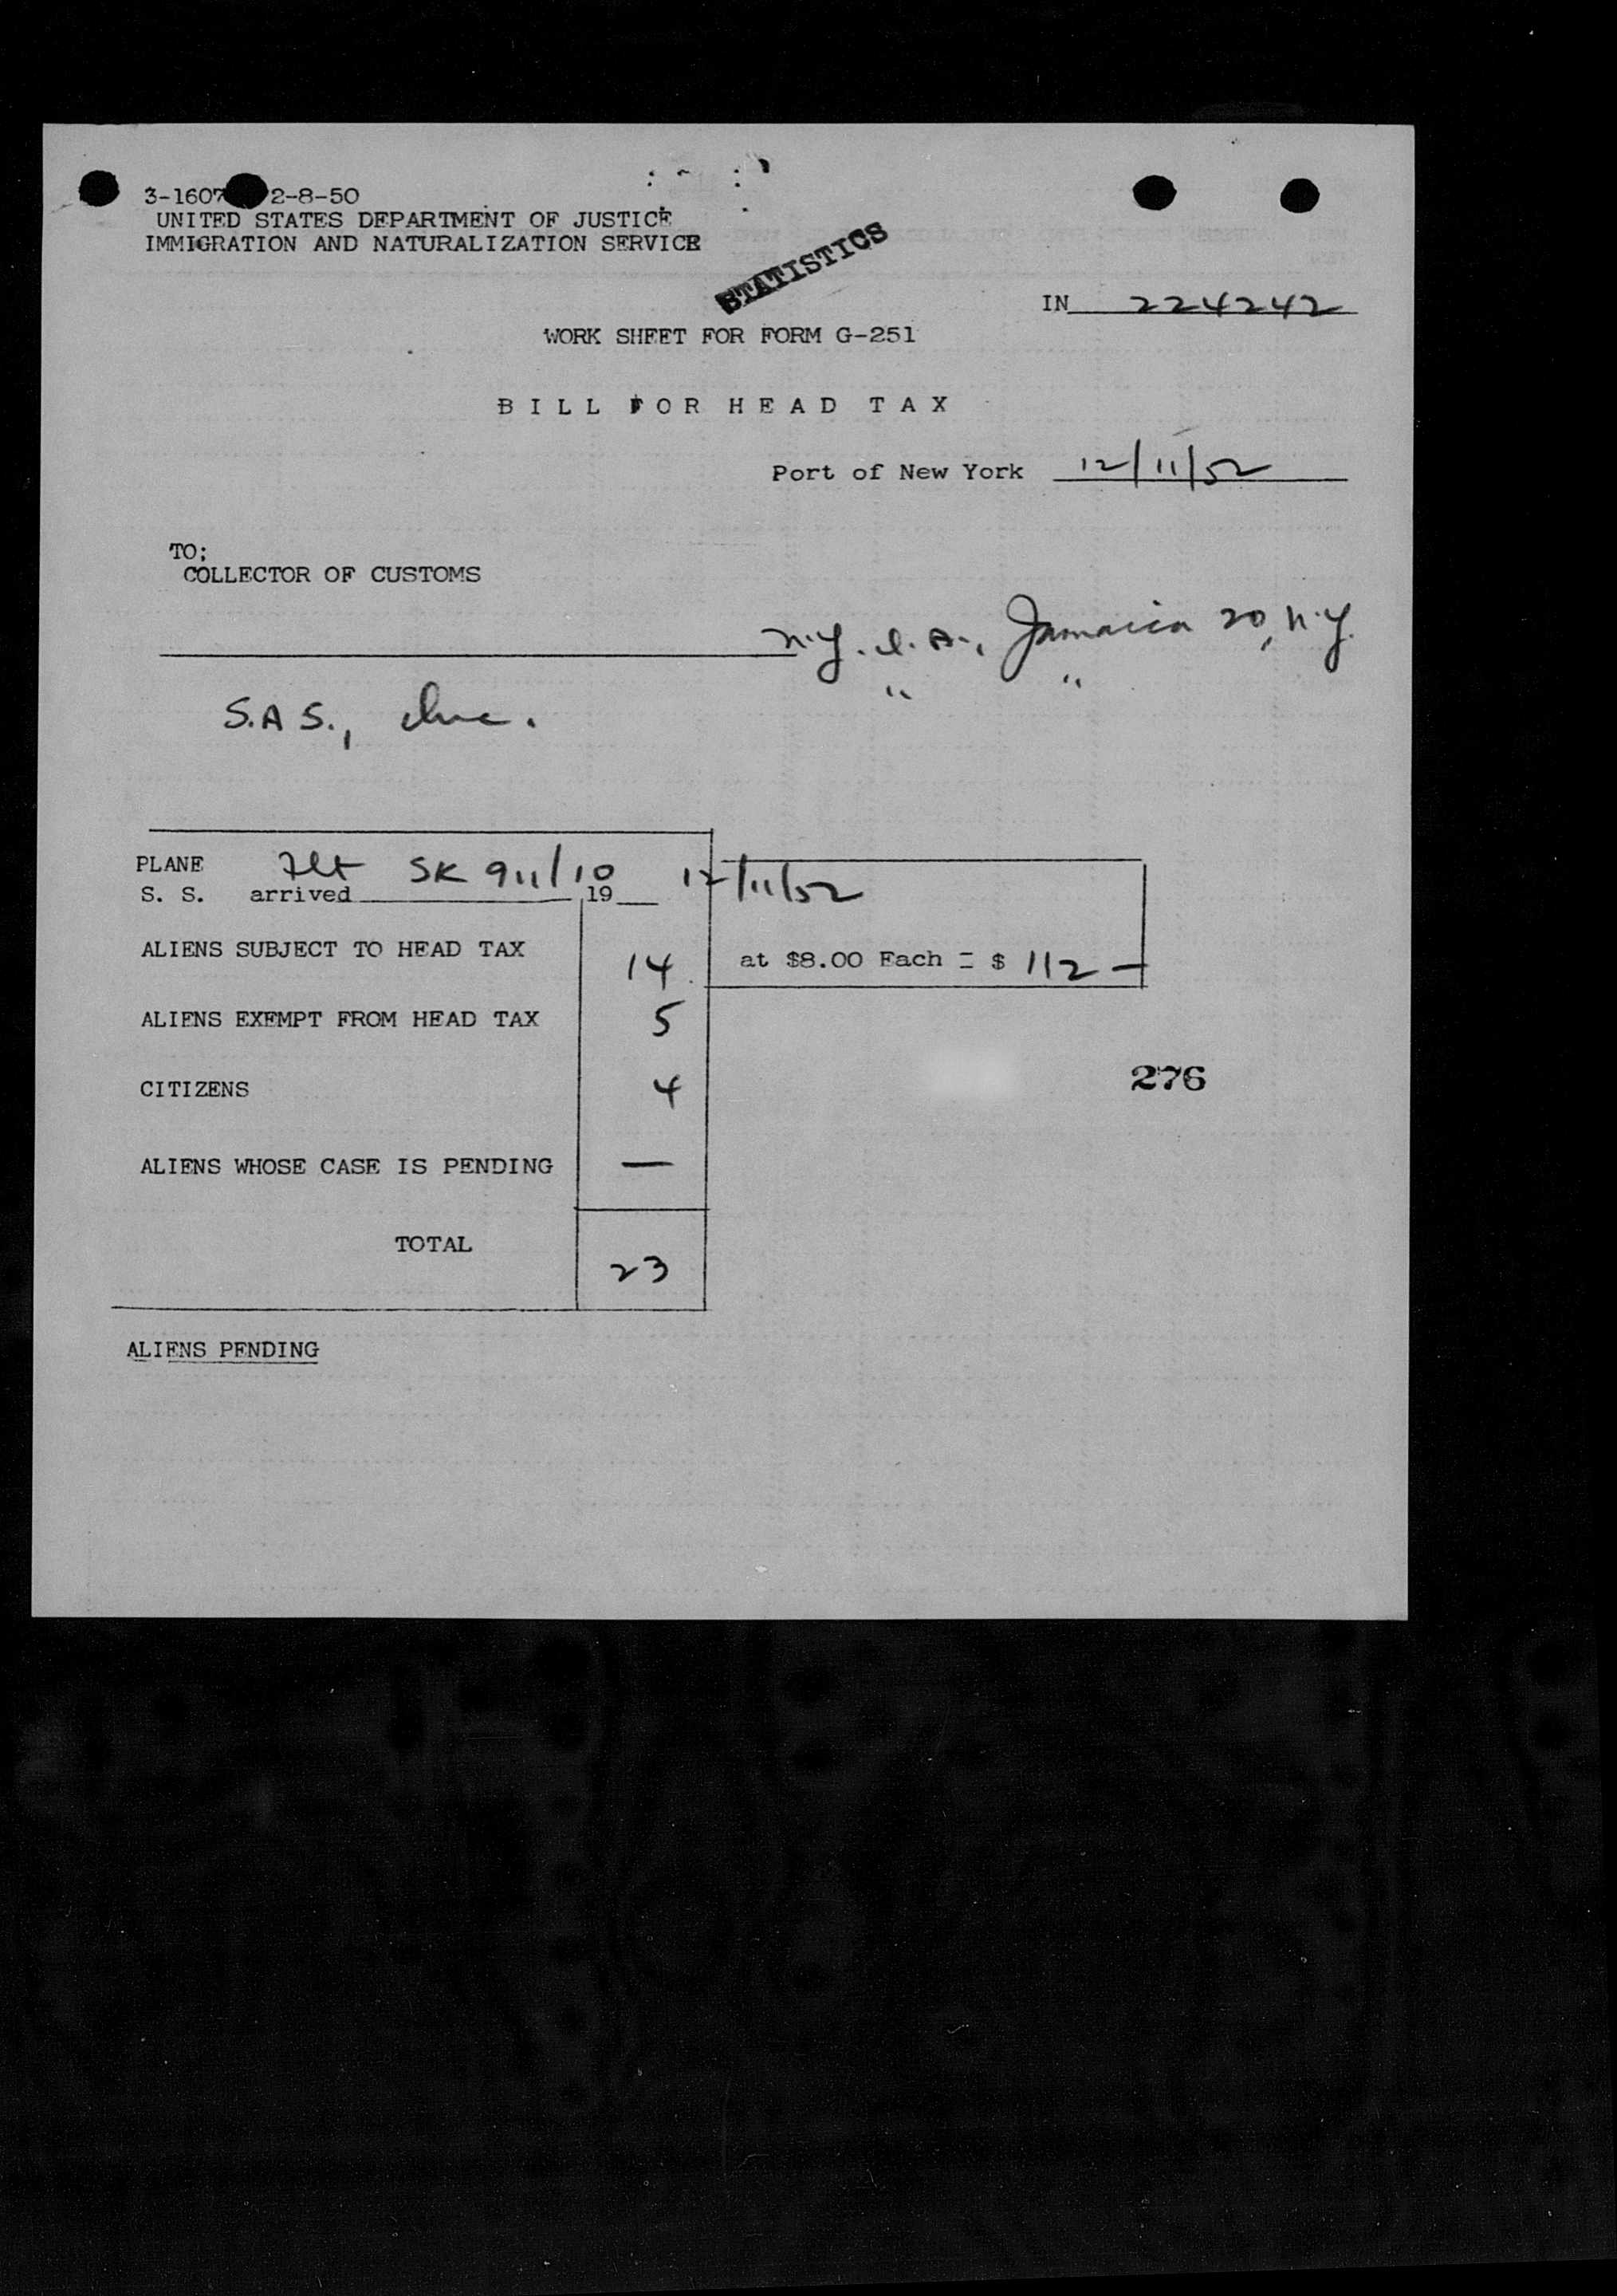 3-1607 2-8-50
UNITED STATES DEPARTMENT OF JUSTICE
IMMIGRATION AND NATURALIZATION SERVICE
STATISTICS
IN 224242
WORK SHEET FOR FORM G-251
BILL FOR HEAD TAX
Port of New York 12/11/52
TO:
COLLECTOR OF CUSTOMS
N.Y. I. A., Jamaica 20, N.Y.
S.A S., Inc. " "
PLANE Flt SK 911/10 12/11/52
S. S. arrived 19
ALIENS SUBJECT TO HEAD TAX 14 at $8.00 Each = $ 112 —
ALIENS EXEMPT FROM HEAD TAX 5
CITIZENS 4
276
ALIENS WHOSE CASE IS PENDING —
TOTAL 23
ALIENS PENDING